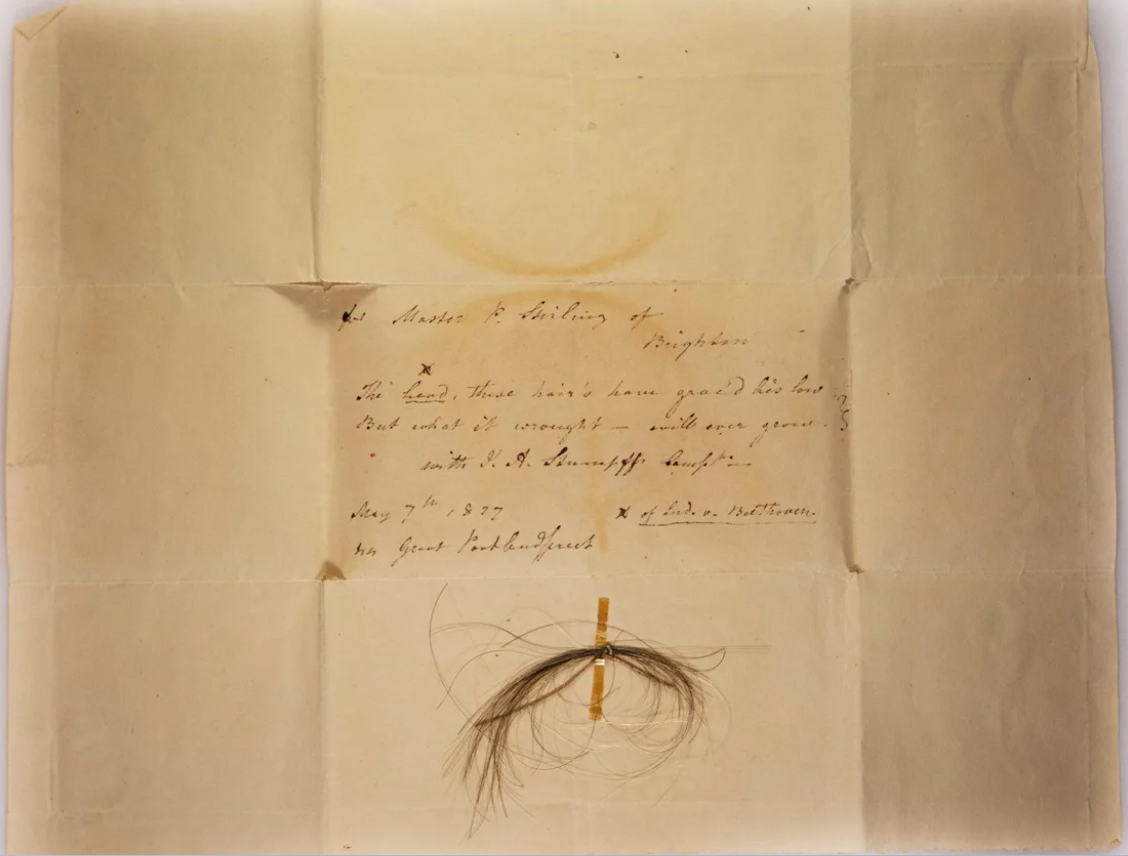 for Master P. Stirling of
Brighton
x
The head, these hair's have grac'd lies low
But what it wrought — will ever grow.
with J. A. Stumpff's
May 7th, 1827
Great Portlandstreet
x of Lud. v. Beethoven.